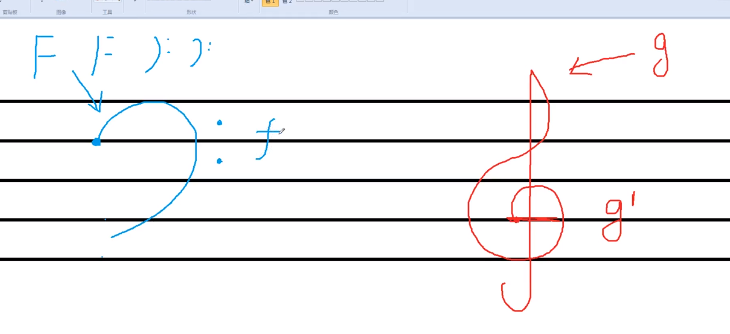 剪贴板 图像 工具 形状 颜色
F F ): ):
g
f
g'